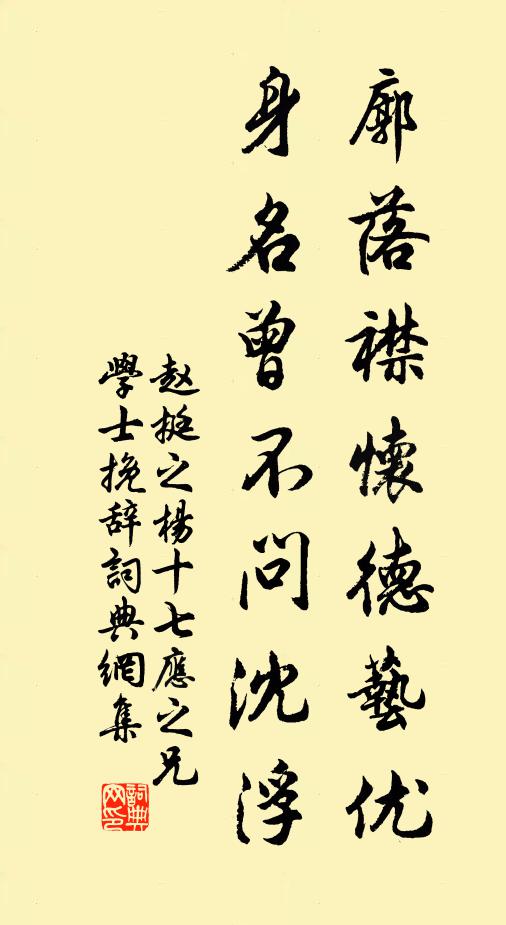 廓落襟懷德藝优
身名曾不問沈浮
赵挺之楊十七應之兄
學士挽辞詞典網集
詞典网印